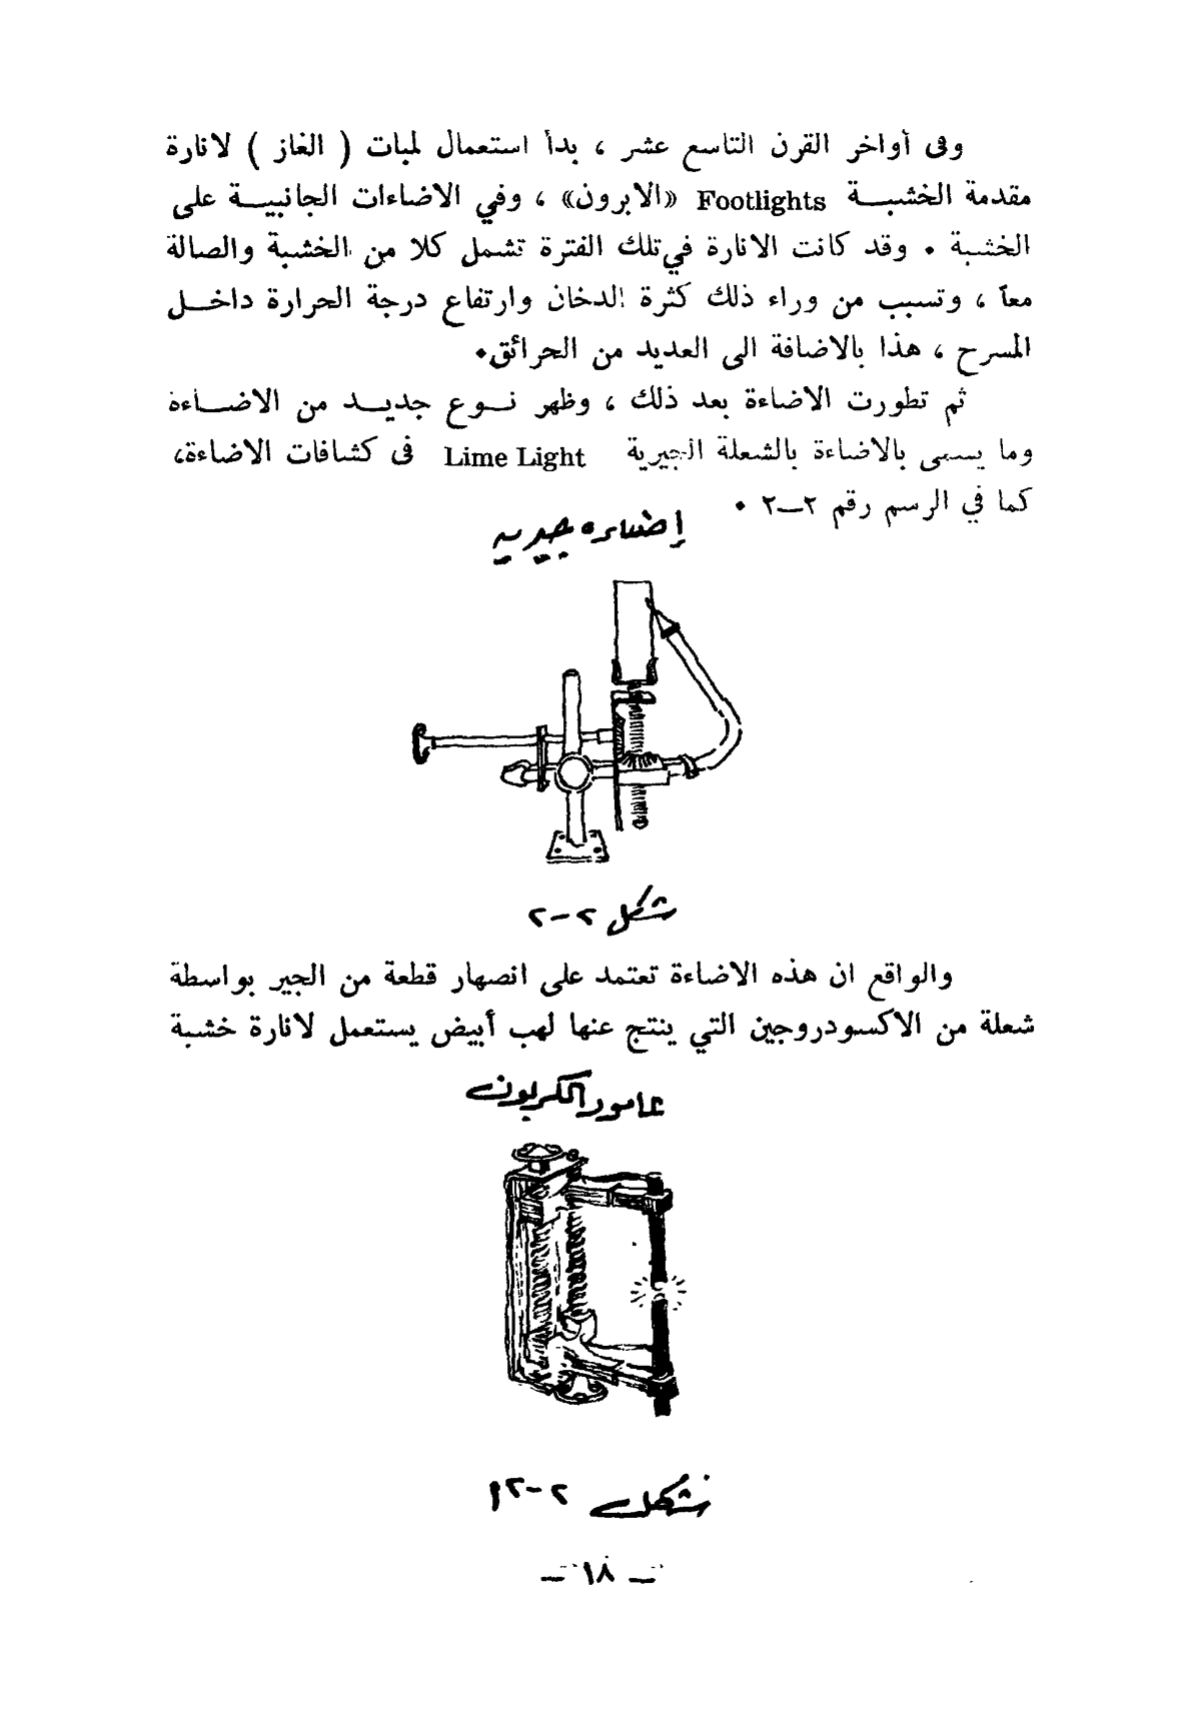 وفى أواخر القرن التاسع عشر ، بدأ استعمال لمبات ( الغاز ) لانارة
مقدمة الخشبـــة Footlights «الابرون» ، وفي الاضاءات الجانبيـــة على
الخشبة . وقد كانت الانارة في تلك الفترة تشمل كلا من الخشبة والصالة
معاً ، وتسبب من وراء ذلك كثرة الدخان وارتفاع درجة الحرارة داخـــل
المسرح ، هذا بالاضافة الى العديد من الحرائق.
ثم تطورت الاضاءة بعد ذلك ، وظهر نـــوع جديـــد من الاضـــاءة
وما يسمى بالاضاءة بالشعلة الجيرية Lime Light فى كشافات الاضاءة،
كما في الرسم رقم ٢—٢ .
إضاءه جيريه
شكل ٢-٢
والواقع ان هذه الاضاءة تعتمد على انصهار قطعة من الجير بواسطة
شعلة من الاكسودروجين التي ينتج عنها لهب أبيض يستعمل لانارة خشبة
عامود الكربون
شكل ٢-٢ا
— ١٨ —